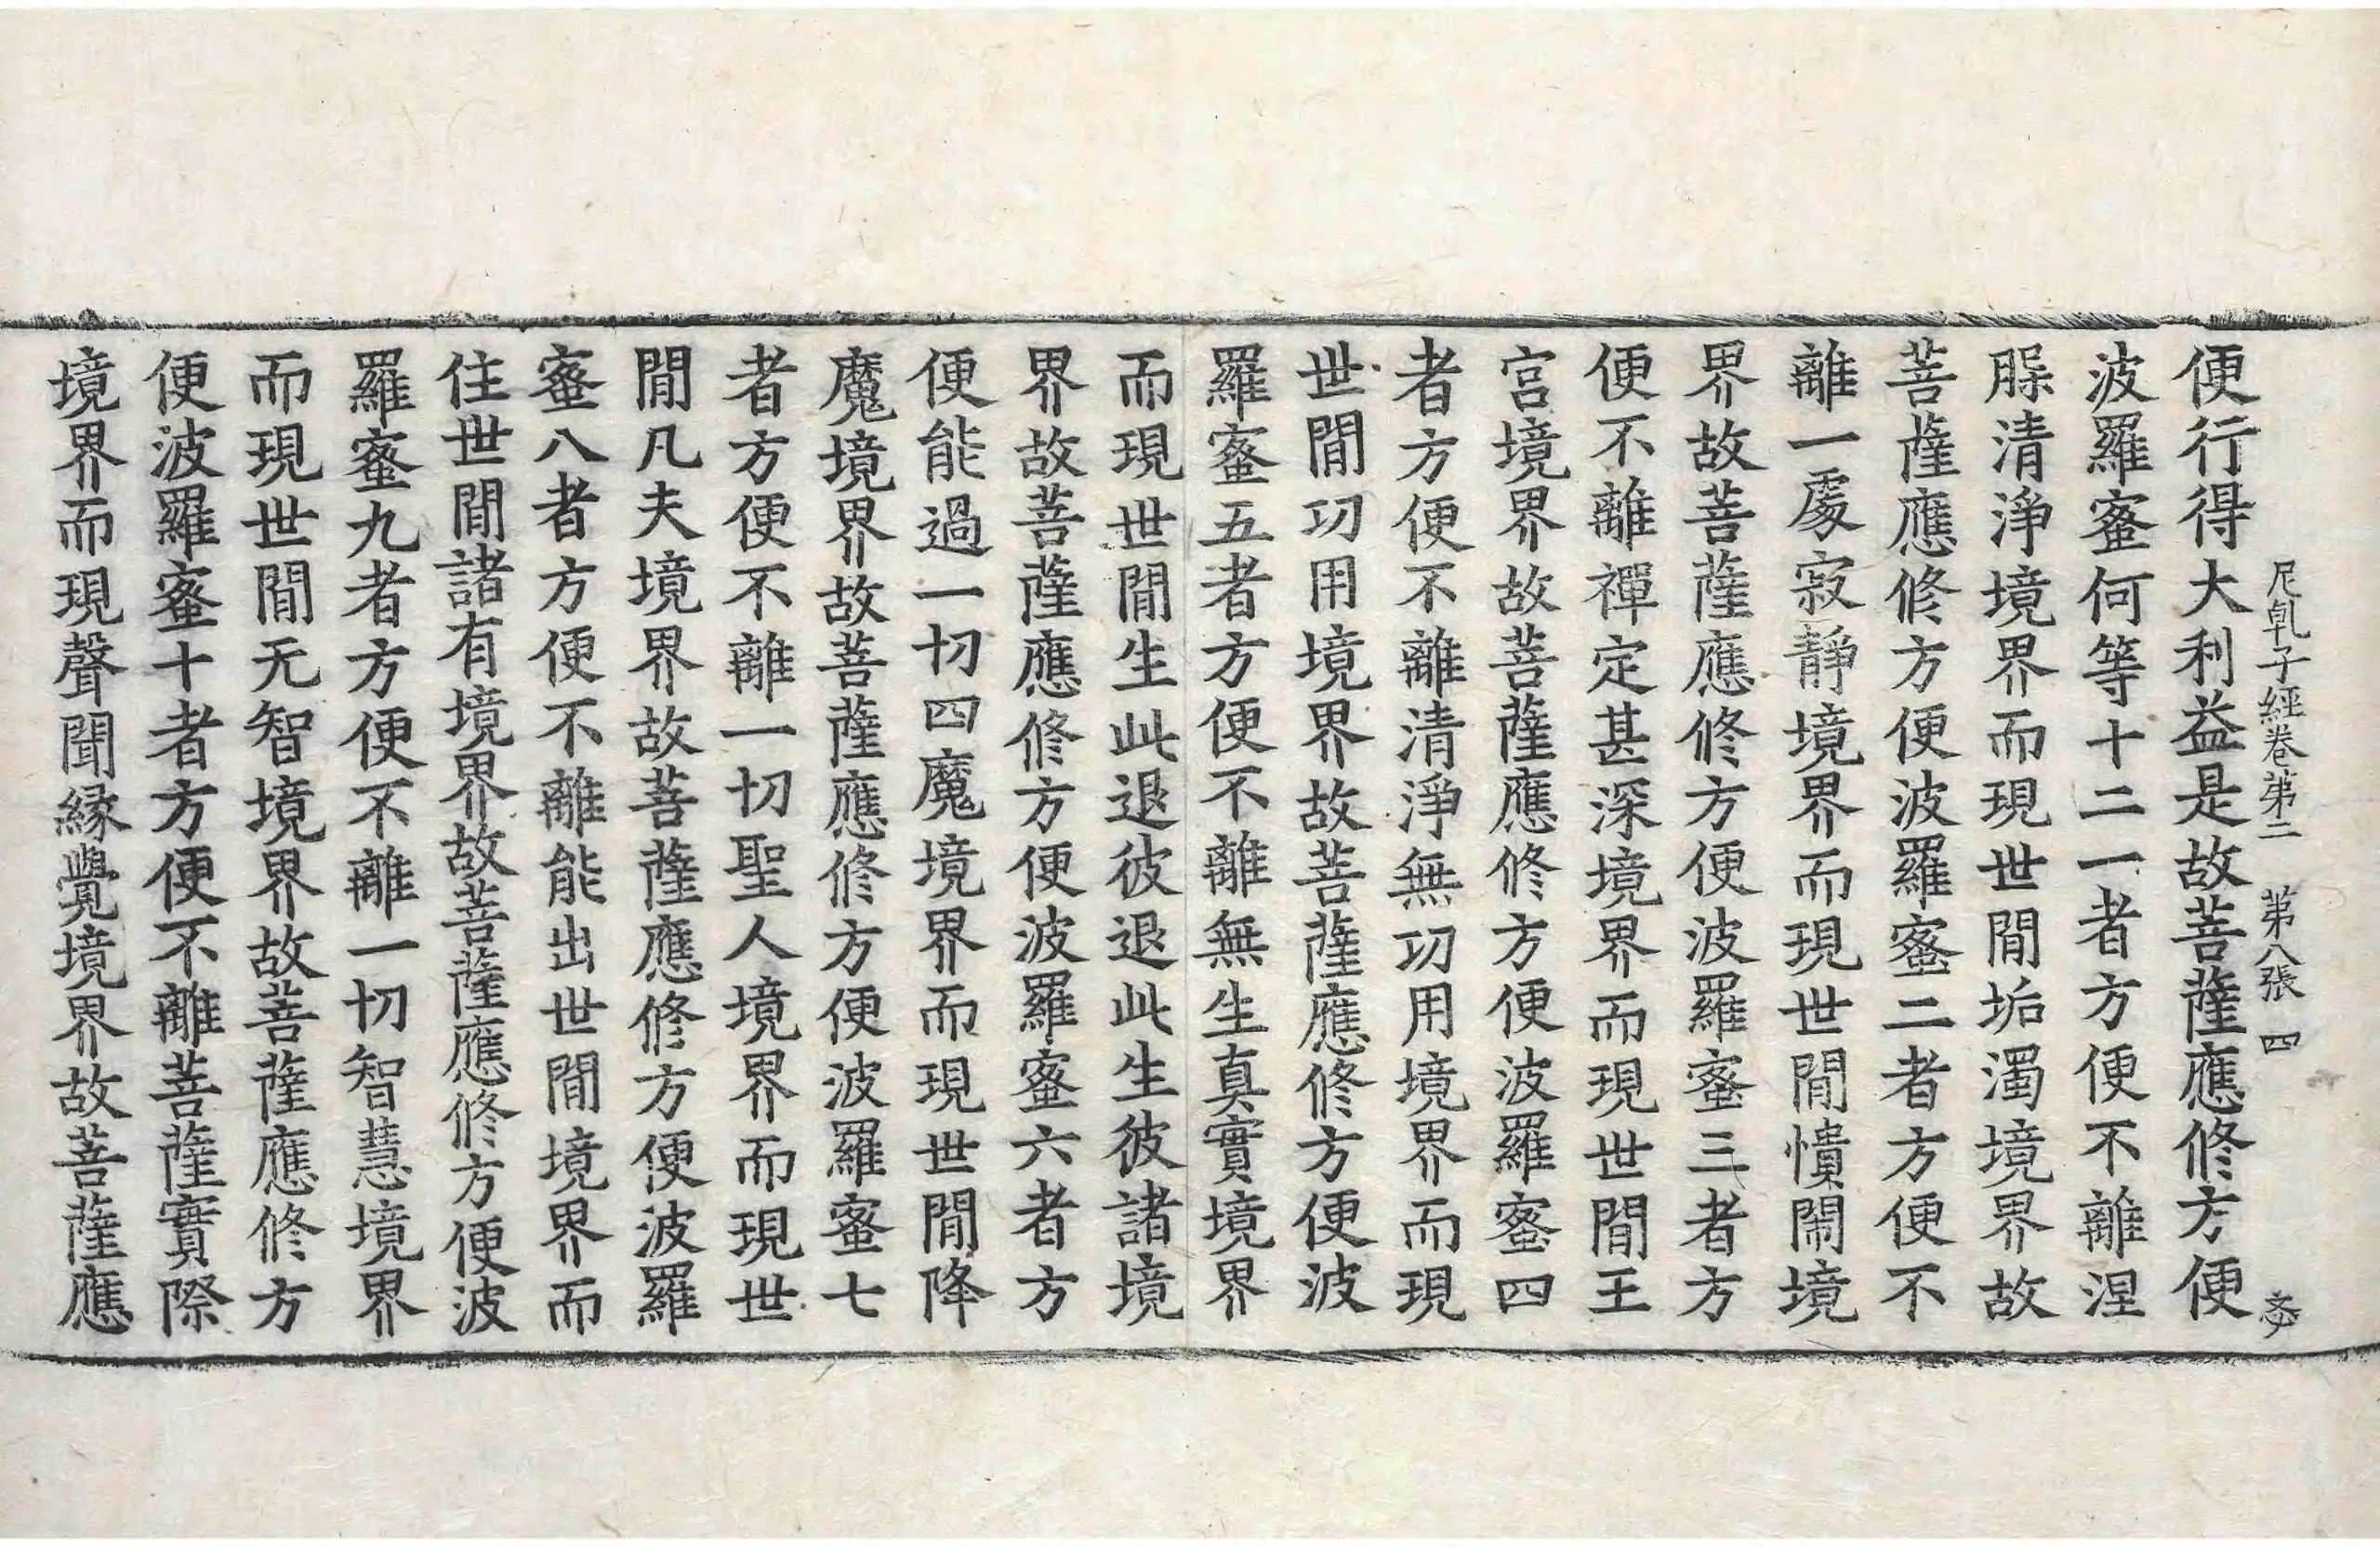 尼乹子經卷第二　第八張　四
便行得大利益是故菩薩應修方便
波羅蜜何等十二一者方便不離涅
腬清淨境界而現世間垢濁境界故
菩薩應修方便波羅蜜二者方便不
離一處寂靜境界而現世間憒閙境
界故菩薩應修方便波羅蜜三者方
便不離禪定甚深境界而現世間王
宮境界故菩薩應修方便波羅蜜四
者方便不離清淨無功用境界而現
世間功用境界故菩薩應修方便波
羅蜜五者方便不離無生真實境界
而現世間生此退彼退此生彼諸境
界故菩薩應修方便波羅蜜六者方
便能過一切四魔境界而現世間降
魔境界故菩薩應修方便波羅蜜七
者方便不離一切聖人境界而現世
間凡夫境界故菩薩應修方便波羅
蜜八者方便不離能出世間境界而
住世間諸有境界故菩薩應修方便波
羅蜜九者方便不離一切智慧境界
而現世間无智境界故菩薩應修方
便波羅蜜十者方便不離菩薩實際
境界而現聲聞緣覺境界故菩薩應